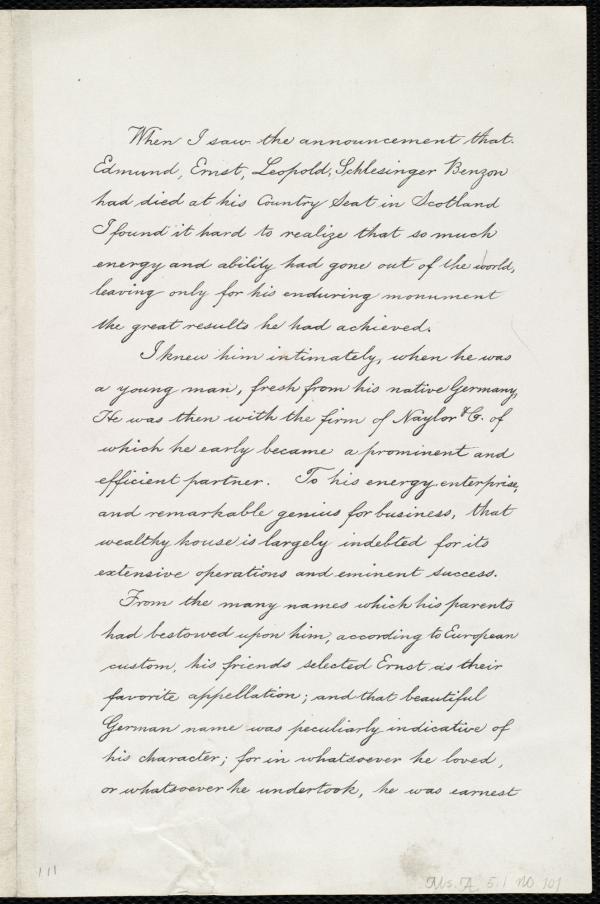 When I saw the announcement that.
Edmund, Ernst, Leopold, Schlesinger Benzon
had died at his Country Seat in Scotland
I found it hard to realize that so much
energy and ability had gone out of the world,
leaving only for his enduring monument
the great results he had achieved.
I knew him intimately, when he was
a young man, fresh from his native Germany,
He was then with the firm of Naylor & Co. of
which he early became a prominent and
efficient partner. To his energy, enterprise,
and remarkable genius for business, that
wealthy house is largely indebted for its
extensive operations and eminent success.
From the many names which his parents
had bestowed upon him, according to European
custom, his friends selected Ernst as their
favorite appellation; and that beautiful
German name was peculiarly indicative of
his character; for in whatsoever he loved,
or whatsoever he undertook, he was earnest
111
Ms. A. 5.1 no. 101